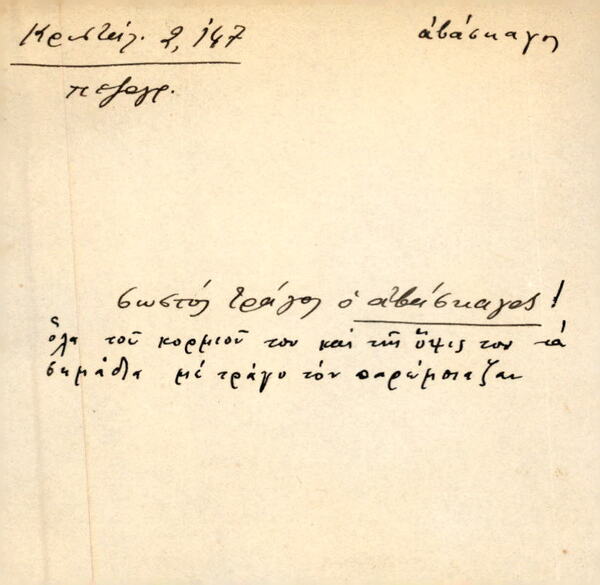 Κρυστάλ. 2, 147
ἀβάσκαγος
πεζογρ.
σωστὸς τράγος ὁ ἀβάσκαγος!
ὅλα τοῦ κορμιοῦ του καὶ τῆς ὄψις του τὰ
σημάδια μὲ τράγο τὸν παρώμοιαζαν